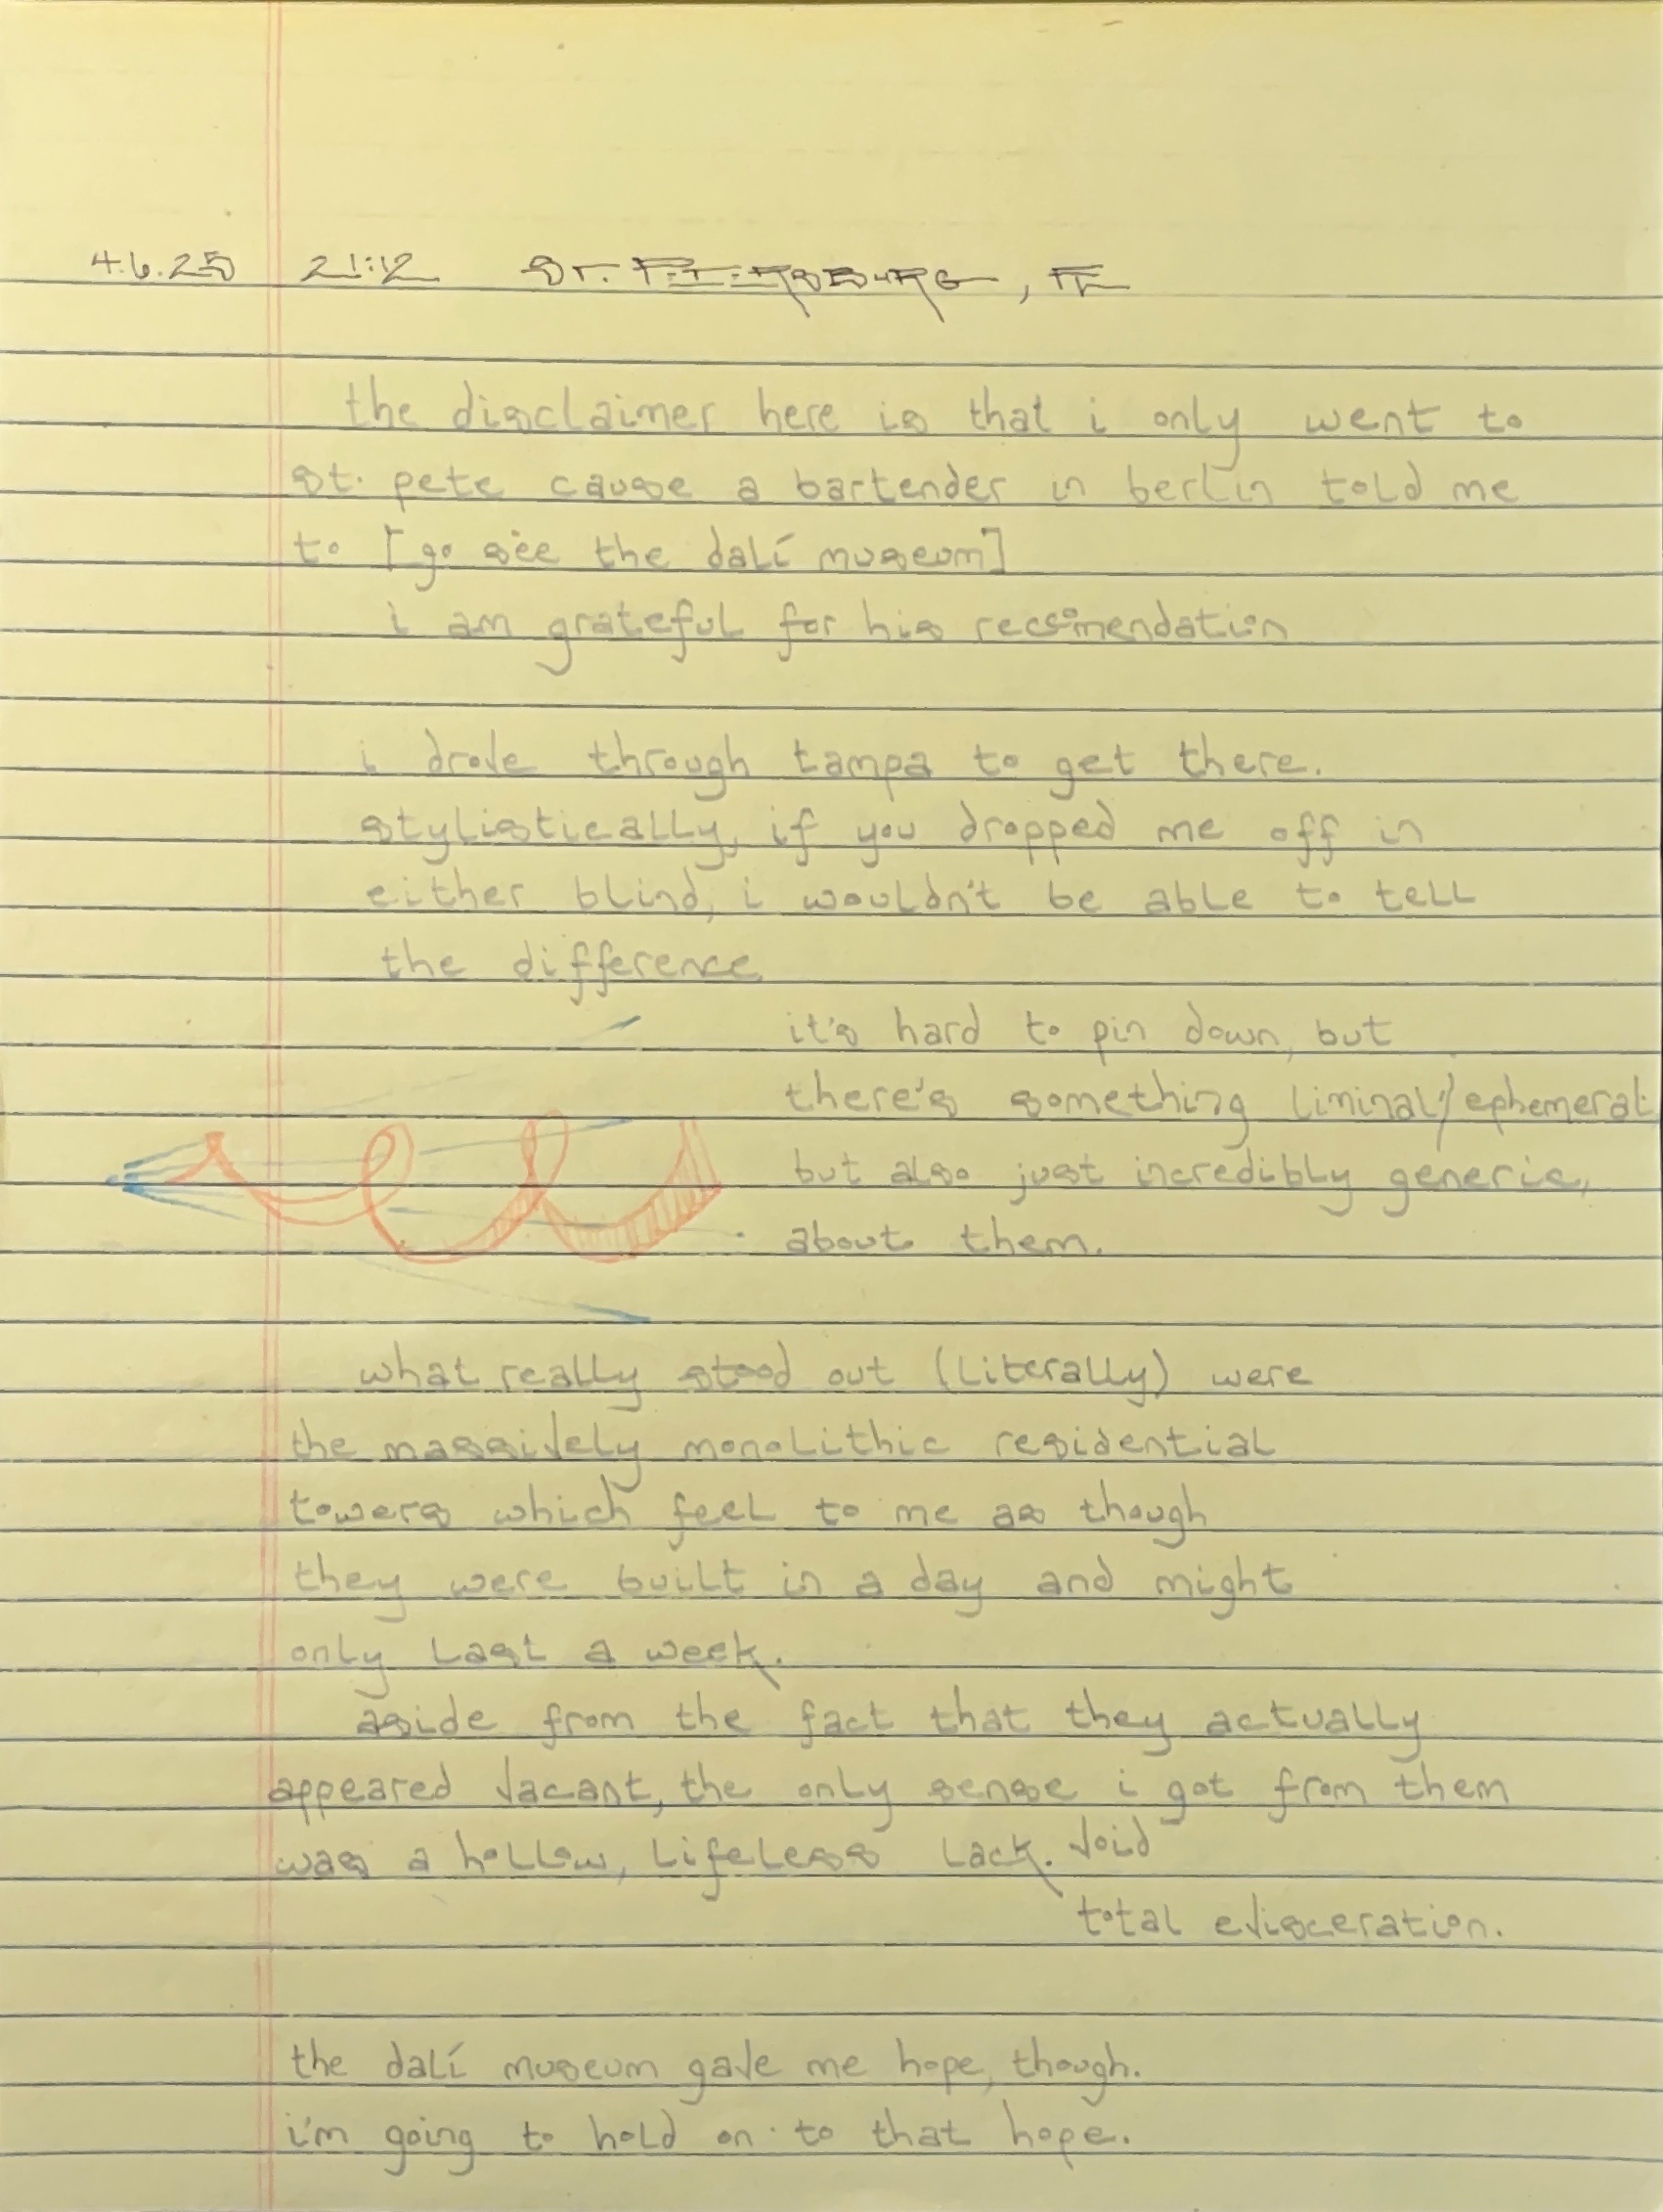 4.6.25 21:12 ST. PETERSBURG, FL
the disclaimer here is that i only went to
st. pete cause a bartender in berlin told me
to [go see the dalí museum]
i am grateful for his recomendation
i drove through tampa to get there.
stylistically, if you dropped me off in
either blind, i wouldn't be able to tell
the difference
it's hard to pin down, but
there's something liminal/ephemeral
but also just incredibly generic,
about them.
what really stood out (literally) were
the massively monolithic residential
towers which feel to me as though
they were built in a day and might
only last a week.
aside from the fact that they actually
appeared vacant, the only sense i got from them
was a hollow, lifeless lack. void
total evisceration.
the dalí museum gave me hope, though.
i'm going to hold on to that hope.